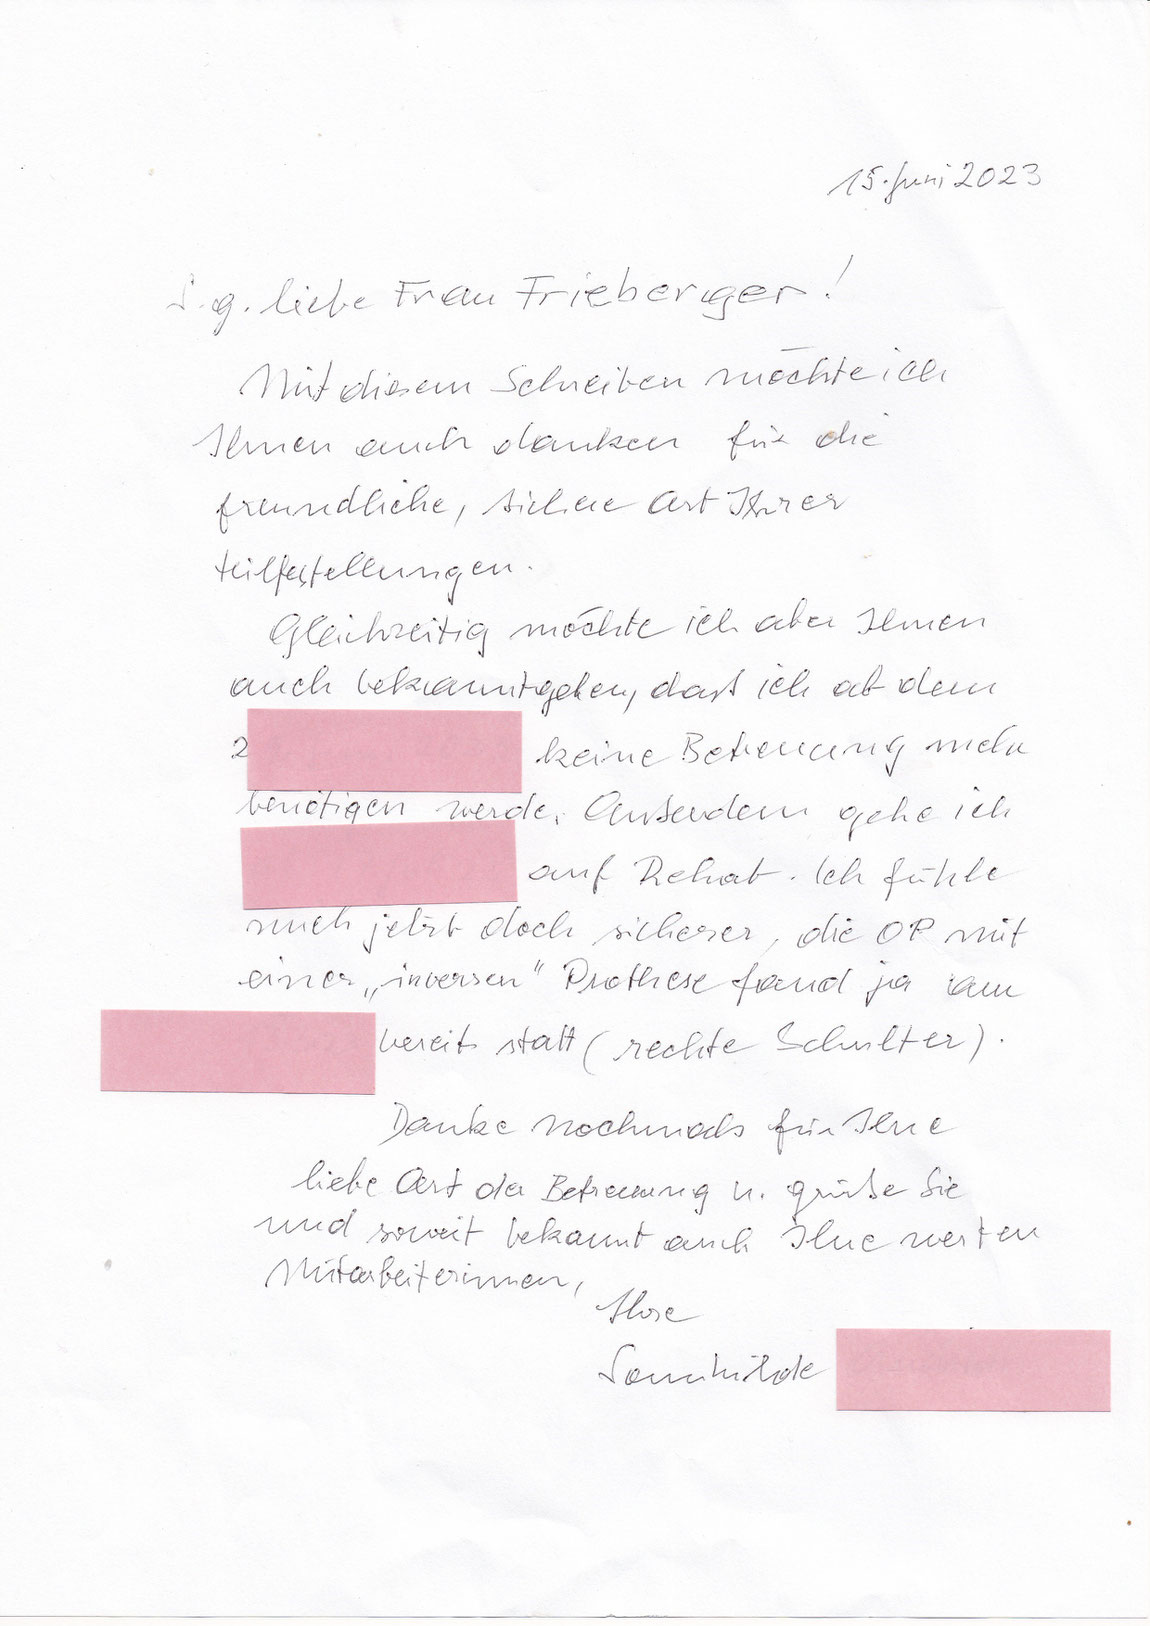 15. Juni 2023
S.g. liebe Frau Frieberger!
Mit diesem Schreiben möchte ich
Ihnen auch danken für die
freundliche, sichere Art Ihrer
Hilfestellungen.
Gleichzeitig möchte ich aber Ihnen
auch bekanntgeben, dass ich ab dem
2 keine Betreuung mehr
benötigen werde. Außerdem gehe ich
auf Rehab. Ich fühle
mich jetzt doch sicherer, die OP mit
einer „inversen“ Prothese fand ja am
bereits statt (rechte Schulter).
Danke nochmals für Ihre
liebe Art der Betreuung u. grüße Sie
und soweit bekannt auch Ihre werten
Mitarbeiterinnen,
Ihre
Sonnhilde